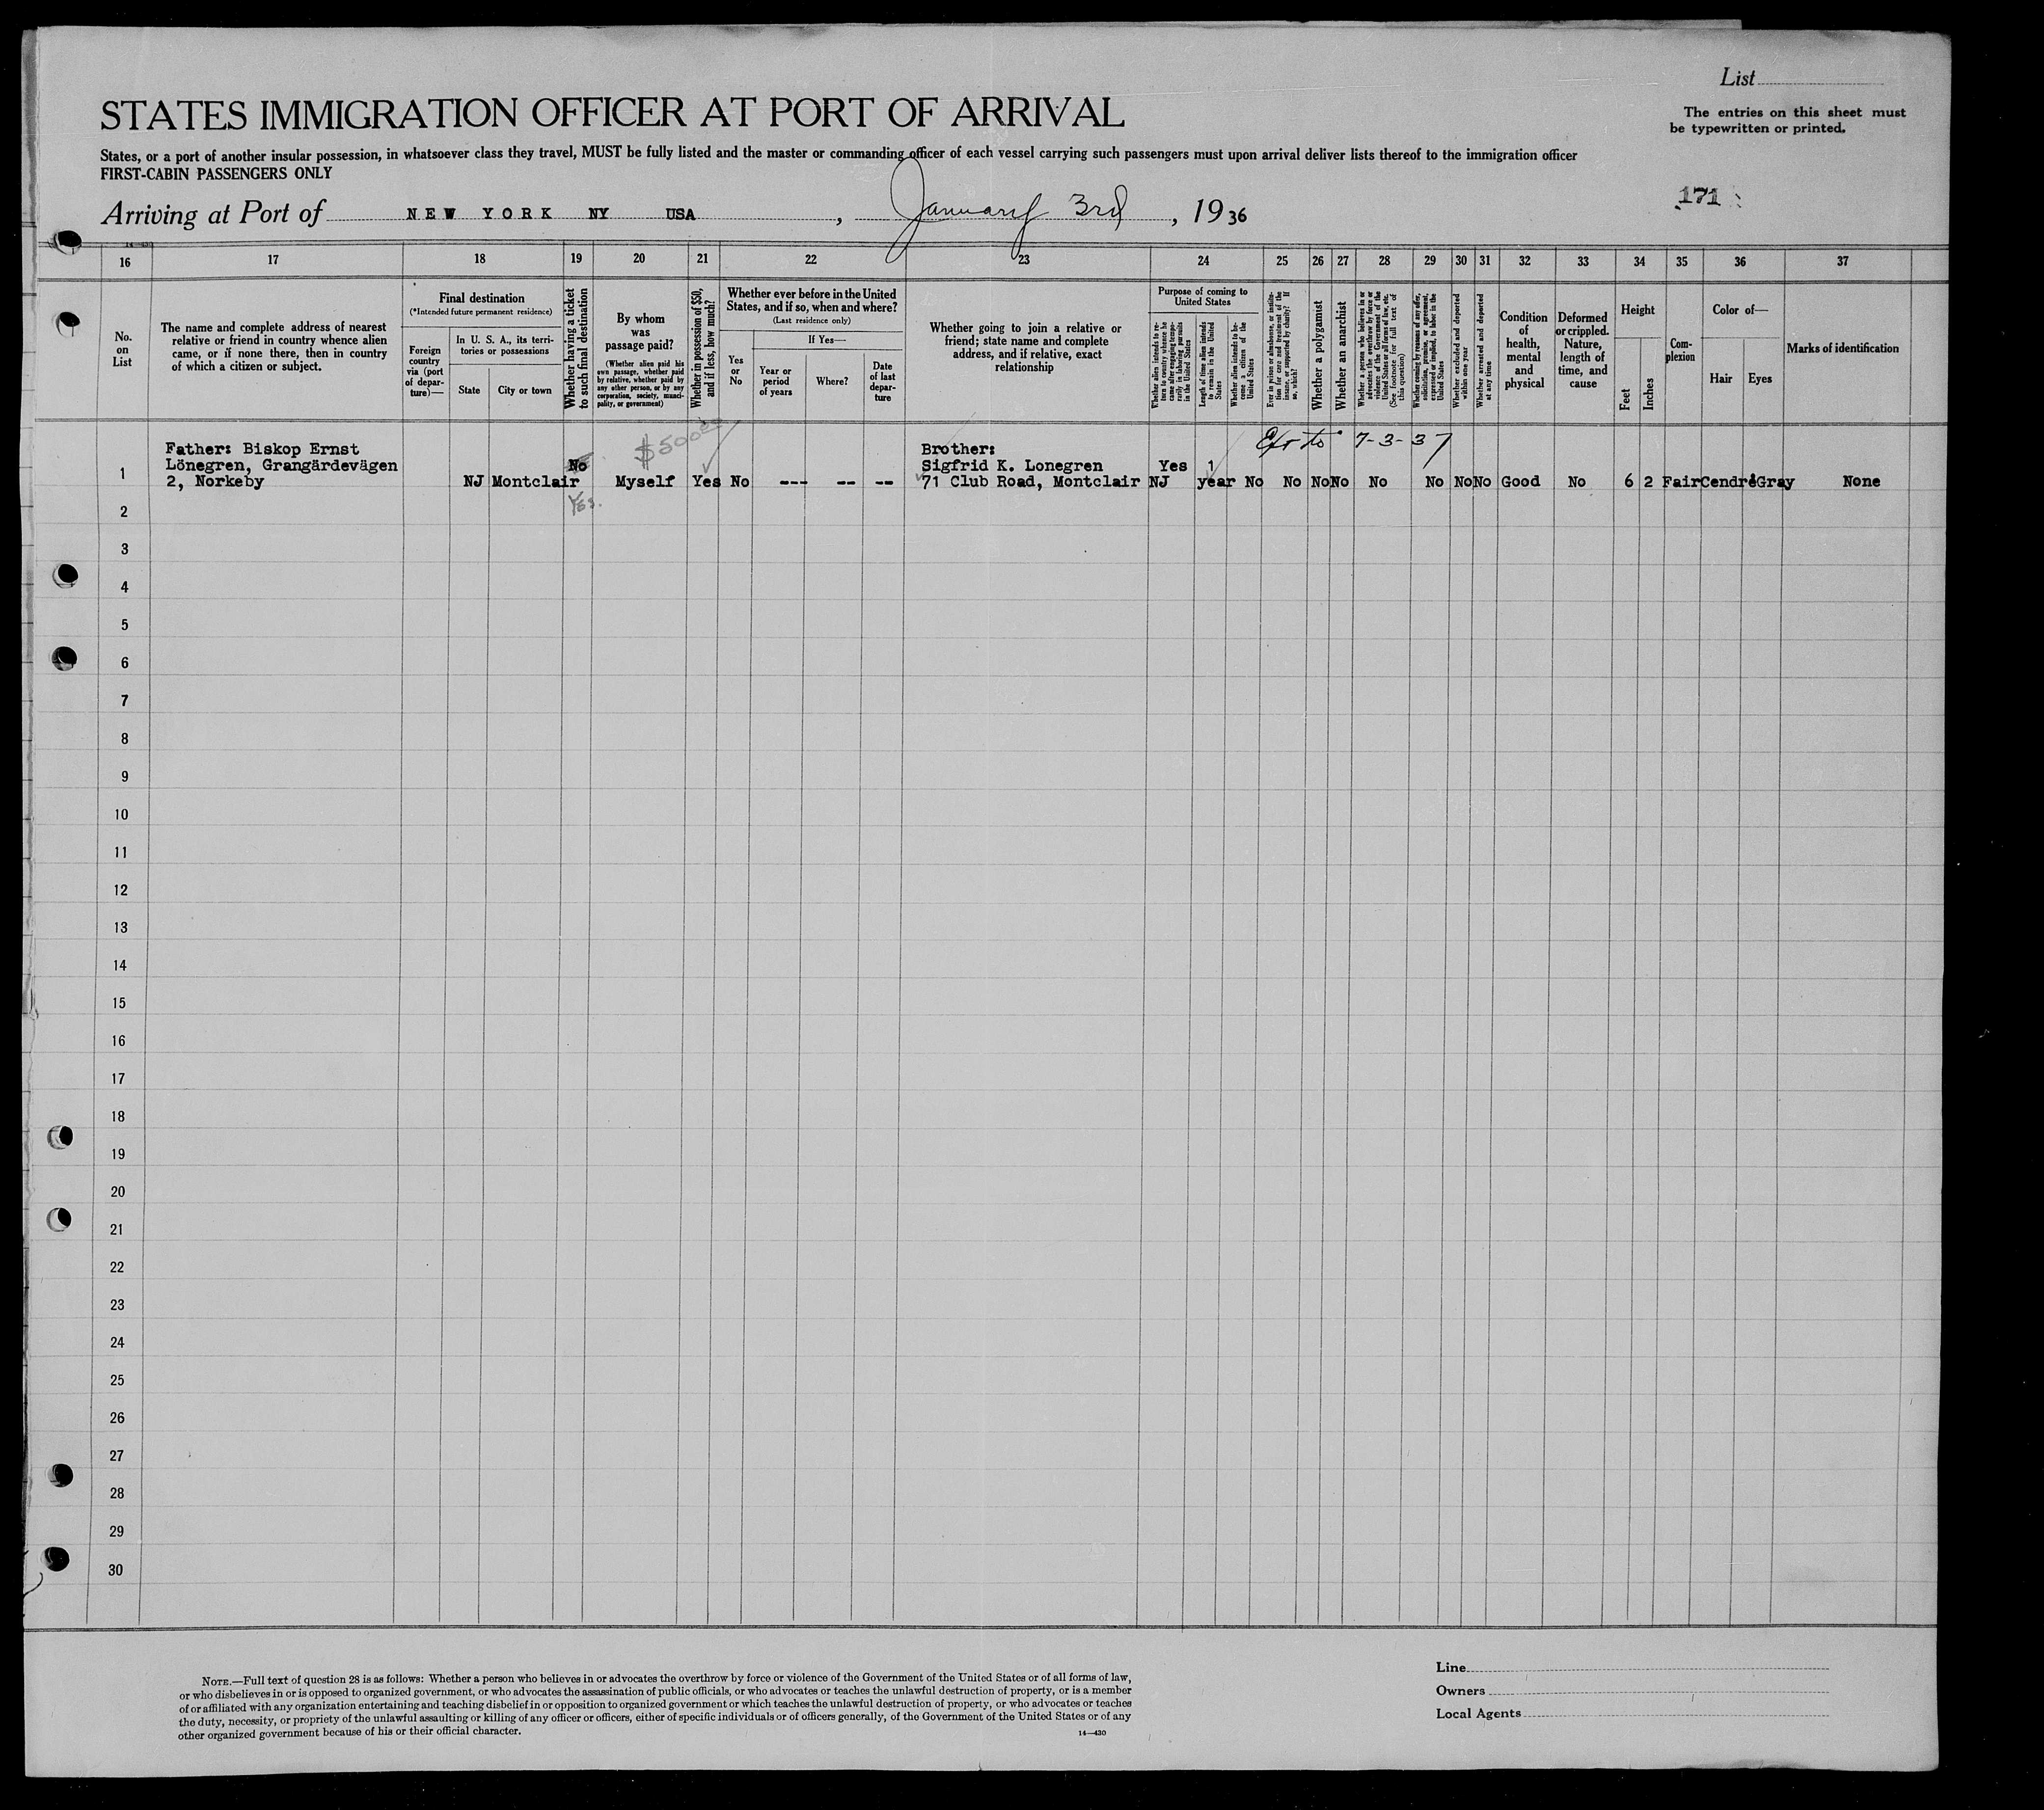 List
STATES IMMIGRATION OFFICER AT PORT OF ARRIVAL
The entries on this sheet must
be typewritten or printed.
States, or a port of another insular possession, in whatsoever class they travel, MUST be fully listed and the master or commanding officer of each vessel carrying such passengers must upon arrival deliver lists thereof to the immigration officer
FIRST-CABIN PASSENGERS ONLY
171
Arriving at Port of NEW YORK NY USA, January 3rd, 1936
16 17 18 19 20 21 22 23 24 25 26 27 28 29 30 31 32 33 34 35 36 37
No.
on
List
The name and complete address of nearest
relative or friend in country whence alien
came, or if none there, then in country
of which a citizen or subject.
Final destination
(*Intended future permanent residence)
Foreign
country
via (port
of depar-
ture)—
In U. S. A., its terri-
tories or possessions
State
City or town
Whether having a ticket
to such final destination
By whom
was
passage paid?
(Whether alien paid his
own passage, whether paid
by relative, whether paid by
any other person, or by any
corporation, society, munici-
pality, or government)
Whether in possession of $50,
and if less, how much?
Whether ever before in the United
States, and if so, when and where?
(Last residence only)
Yes
or
No
If Yes—
Year or
period
of years
Where?
Date
of last
depar-
ture
Whether going to join a relative or
friend; state name and complete
address, and if relative, exact
relationship
Purpose of coming to
United States
Whether alien intends to re-
turn to country whence he
came after engaging tempo-
rarily in laboring pursuits
in the United States
Length of time alien intends
to remain in the United
States
Whether alien intends to be-
come a citizen of the
United States
Ever in prison or almshouse, or institu-
tion for care and treatment of the
insane, or supported by charity? If
so, which?
Whether a polygamist
Whether an anarchist
Whether a person who believes in or
advocates the overthrow by force or
violence of the Government of the
United States or all forms of law, etc.
(See footnote for full text of
this question)
Whether coming by reason of any offer,
solicitation, promise, or agreement,
expressed or implied, to labor in the
United States
Whether excluded and deported
within one year
Whether arrested and deported
at any time
Condition
of
health,
mental
and
physical
Deformed
or crippled.
Nature,
length of
time, and
cause
Height
Feet
Inches
Com-
plexion
Color of—
Hair
Eyes
Marks of identification
$500
7-3-37
Father: Biskop Ernst
Lönegren, Grangärdevägen
2, Norkeby
NJ Montclair
No
Yes.
Myself Yes No --- -- --
Brother:
Sigfrid K. Lonegren
71 Club Road, Montclair NJ
Yes
1
year No No No No No No No No Good No 6 2 Fair Cendré Gray None
1
2
3
4
5
6
7
8
9
10
11
12
13
14
15
16
17
18
19
20
21
22
23
24
25
26
27
28
29
30
NOTE.—Full text of question 28 is as follows: Whether a person who believes in or advocates the overthrow by force or violence of the Government of the United States or of all forms of law,
or who disbelieves in or is opposed to organized government, or who advocates the assassination of public officials, or who advocates or teaches the unlawful destruction of property, or is a member
of or affiliated with any organization entertaining and teaching disbelief in or opposition to organized government or which teaches the unlawful destruction of property, or who advocates or teaches
the duty, necessity, or propriety of the unlawful assaulting or killing of any officer or officers, either of specific individuals or of officers generally, of the Government of the United States or of any
other organized government because of his or their official character.
14—430
Line
Owners
Local Agents